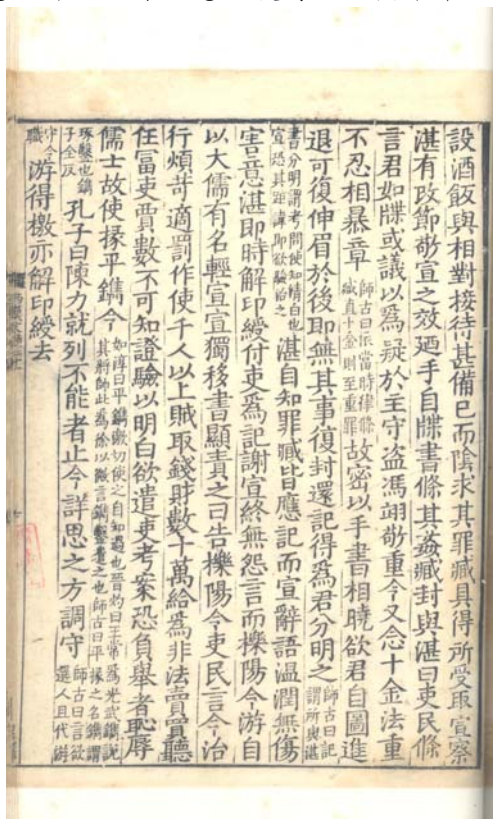 設酒飯與相對接待甚備已而陰求其罪臧具得所受取宣察
湛有改節敬宣之效廼手自牒書條其姦臧封與湛曰吏民條
言君如牒或議以爲疑於主守盗馮翊敬重令又念十金法重
不忍相暴章師古曰依當時律條臧直十金則至重罪故密以手書相曉欲君自圖進
退可復伸眉於後即無其事復封還記得爲君分明之師古曰記謂所與湛
書分明謂考問使知情白也宣恐其距諱即欲驗治之湛自知罪臧皆應記而宣辭語温潤無傷
害意湛即時解印綬付吏爲記謝宣終無怨言而櫟陽令游自
以大儒有名輕宣宣獨移書顯責之曰告櫟陽令吏民言令治
行煩苛適罰作使千人以上賊取錢財數十萬給爲非法賣買聽
任富吏賈數不可知證驗以明白欲遣吏考案恐負舉者恥辱
儒士故使掾平鐫令如淳曰平鐫激切使之自知過也晉灼曰王常爲光武鐫説其將帥此爲徐以微言鐫鑿遣之也師古曰平掾之名鐫謂
琢鑿也鐫子全反孔子曰陳力就列不能者止令詳思之方調守師古曰言欲選人且代游
守令職游得檄亦解印綬去